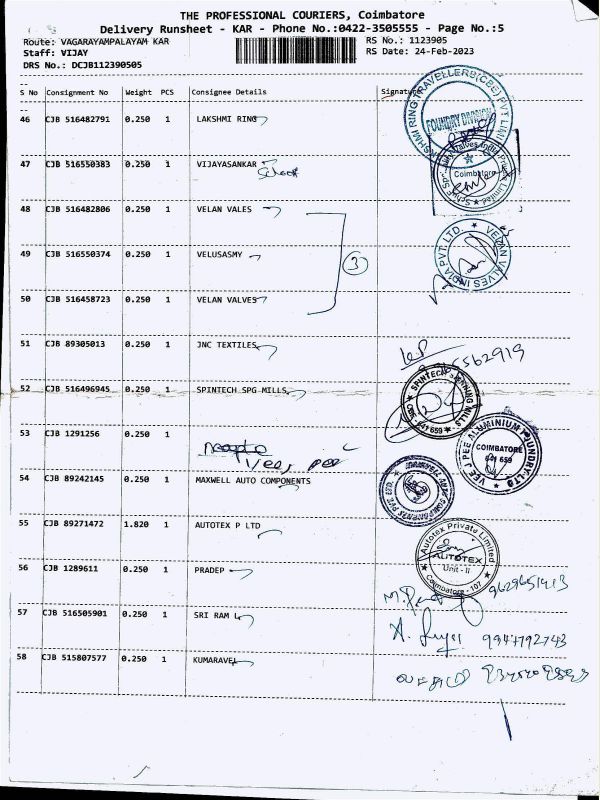 THE PROFESSIONAL COURIERS, Coimbatore
Delivery Runsheet - KAR - Phone No.:0422-3505555 - Page No.:5
Route: VAGARAYAMPALAYAM KAR RS No.: 1123905
Staff: VIJAY RS Date: 24-Feb-2023
DRS No.: DCJB112390505
S No Consignment No Weight PCS Consignee Details Signature
46 CJB 516482791 0.250 1 LAKSHMI RING
FOUNDRY DIVISION
47 CJB 516550383 0.250 1 VIJAYASANKAR
Coimbatore
48 CJB 516482806 0.250 1 VELAN VALES
49 CJB 516550374 0.250 1 VELUSASMY
3
VELAN VALVES INDIA PVT. LTD.
50 CJB 516458723 0.250 1 VELAN VALVES
51 CJB 89305013 0.250 1 JNC TEXTILES
52 CJB 516496945 0.250 1 SPINTECH SPG MILLS
53 CJB 1291256 0.250 1
Vee jee pee
VEE J PEE ALUMINIUM FOUNDRY-LTD
COIMBATORE
641 659
54 CJB 89242145 0.250 1 MAXWELL AUTO COMPONENTS
55 CJB 89271472 1.820 1 AUTOTEX P LTD
Autotex Private Limited
AUTOTEX
Unit - II
Coimbatore - 107
56 CJB 1289611 0.250 1 PRADEP
9629651413
57 CJB 516505901 0.250 1 SRI RAM L
9947792743
58 CJB 515807577 0.250 1 KUMARAVEL